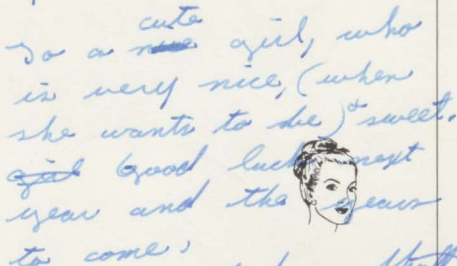 cute
To a nice girl, who
is very nice, (when
she wants to be) & sweet.
girl Good luck next
year and the years
to come.